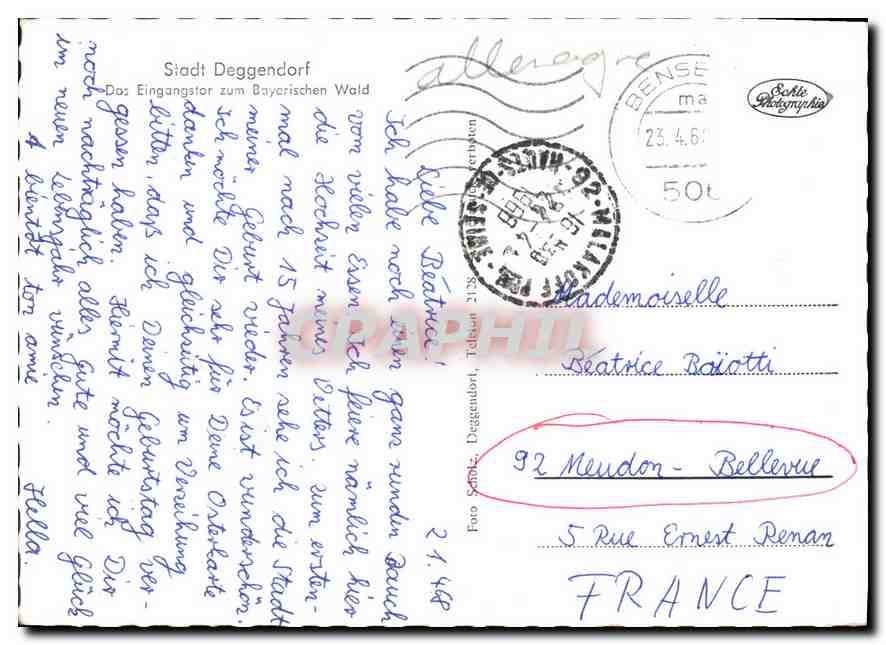 Stadt Deggendorf
Das Eingangstor zum Bayerischen Wald
21.4.68
Liebe Béatrice!
Ich habe noch einen ganz runden Bauch
vom vielen Essen. Ich feiere nämlich hier
die Hochzeit meines Vetters. zum ersten-
mal nach 15 Jahren sehe ich die Stadt
meiner Geburt wieder. Es ist wunderschön.
Ich möchte Dir sehr für Deine Osterkarte
danken und gleichzeitig um Verzeihung
bitten, dass ich Deinen Geburtstag ver-
gessen habe. Hiermit möchte ich Dir
noch nachträglich alles Gute und viel Glück
im neuen Lebensjahr wünschen.
A bientôt ton amie Hella.
Foto Scholz, Deggendorf, Telefon 2128
verboten
allemagne
BENSE
23.4.6
92-MALAKOFF PPAL
HTS-DE-SEINE
Echte
Photographie
CPAPHIL
Mademoiselle
Béatrice Baïotti
92 Meudon - Bellevue
5 Rue Ernest Renan
FRANCE